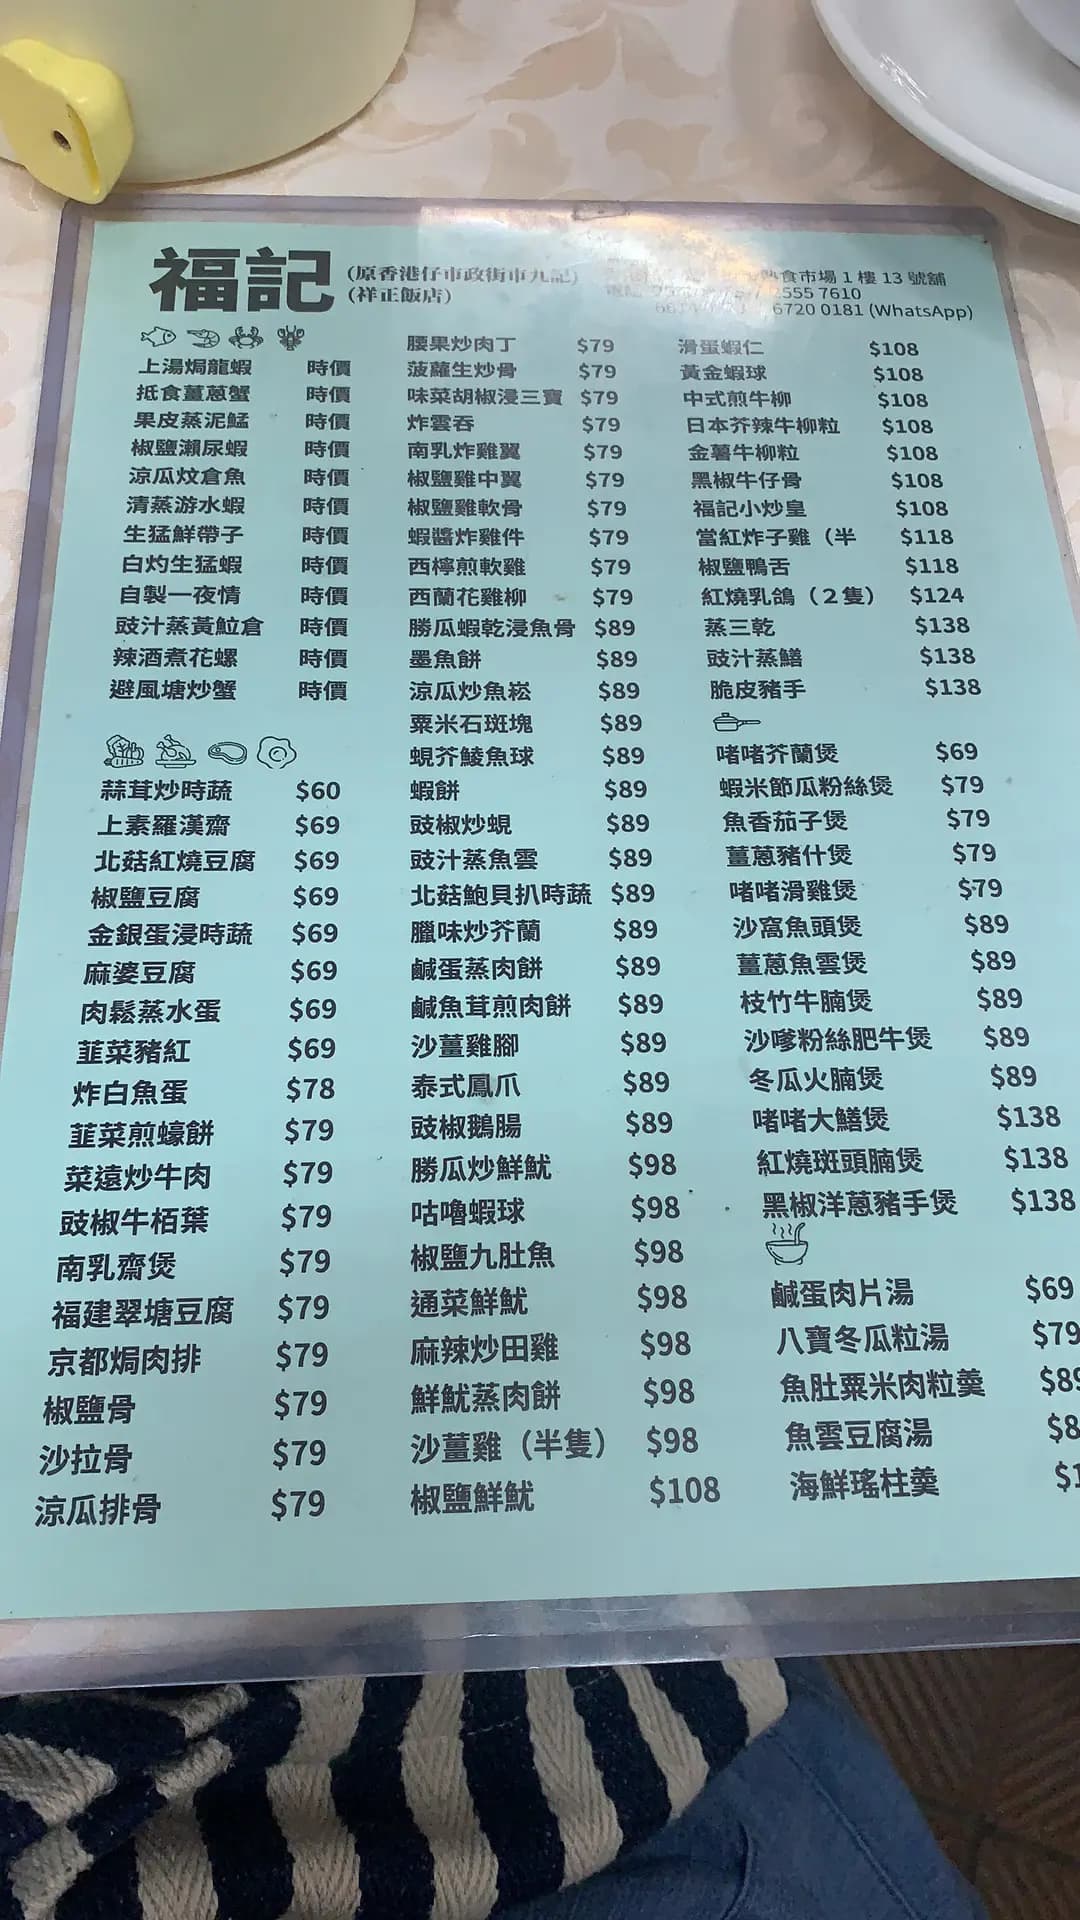 福記
(原香港仔市政街市九記)
(祥正飯店)
熟食市場 1 樓 13 號舖
2555 7610
6720 0181 (WhatsApp)
上湯焗龍蝦 時價
抵食薑蔥蟹 時價
果皮蒸泥鯭 時價
椒鹽瀨尿蝦 時價
涼瓜炆倉魚 時價
清蒸游水蝦 時價
生猛鮮帶子 時價
白灼生猛蝦 時價
自製一夜情 時價
豉汁蒸黃䱽倉 時價
辣酒煮花螺 時價
避風塘炒蟹 時價
蒜茸炒時蔬 $60
上素羅漢齋 $69
北菇紅燒豆腐 $69
椒鹽豆腐 $69
金銀蛋浸時蔬 $69
麻婆豆腐 $69
肉鬆蒸水蛋 $69
韮菜豬紅 $69
炸白魚蛋 $78
韮菜煎蠔餅 $79
菜遠炒牛肉 $79
豉椒牛栢葉 $79
南乳齋煲 $79
福建翠塘豆腐 $79
京都焗肉排 $79
椒鹽骨 $79
沙拉骨 $79
涼瓜排骨 $79
腰果炒肉丁 $79
菠蘿生炒骨 $79
味菜胡椒浸三寶 $79
炸雲吞 $79
南乳炸雞翼 $79
椒鹽雞中翼 $79
椒鹽雞軟骨 $79
蝦醬炸雞件 $79
西檸煎軟雞 $79
西蘭花雞柳 $79
勝瓜蝦乾浸魚骨 $89
墨魚餅 $89
涼瓜炒魚崧 $89
粟米石斑塊 $89
蜆芥鯪魚球 $89
蝦餅 $89
豉椒炒蜆 $89
豉汁蒸魚雲 $89
北菇鮑貝扒時蔬 $89
臘味炒芥蘭 $89
鹹蛋蒸肉餅 $89
鹹魚茸煎肉餅 $89
沙薑雞腳 $89
泰式鳳爪 $89
豉椒鵝腸 $89
勝瓜炒鮮魷 $98
咕嚕蝦球 $98
椒鹽九肚魚 $98
通菜鮮魷 $98
麻辣炒田雞 $98
鮮魷蒸肉餅 $98
沙薑雞（半隻） $98
椒鹽鮮魷 $108
滑蛋蝦仁 $108
黃金蝦球 $108
中式煎牛柳 $108
日本芥辣牛柳粒 $108
金薯牛柳粒 $108
黑椒牛仔骨 $108
福記小炒皇 $108
當紅炸子雞（半 $118
椒鹽鴨舌 $118
紅燒乳鴿（2隻） $124
蒸三乾 $138
豉汁蒸鱔 $138
脆皮豬手 $138
啫啫芥蘭煲 $69
蝦米節瓜粉絲煲 $79
魚香茄子煲 $79
薑蔥豬什煲 $79
啫啫滑雞煲 $79
沙窩魚頭煲 $89
薑蔥魚雲煲 $89
枝竹牛腩煲 $89
沙嗲粉絲肥牛煲 $89
冬瓜火腩煲 $89
啫啫大鱔煲 $138
紅燒斑頭腩煲 $138
黑椒洋蔥豬手煲 $138
鹹蛋肉片湯 $69
八寶冬瓜粒湯 $79
魚肚粟米肉粒羹 $89
魚雲豆腐湯 $8
海鮮瑤柱羹 $1